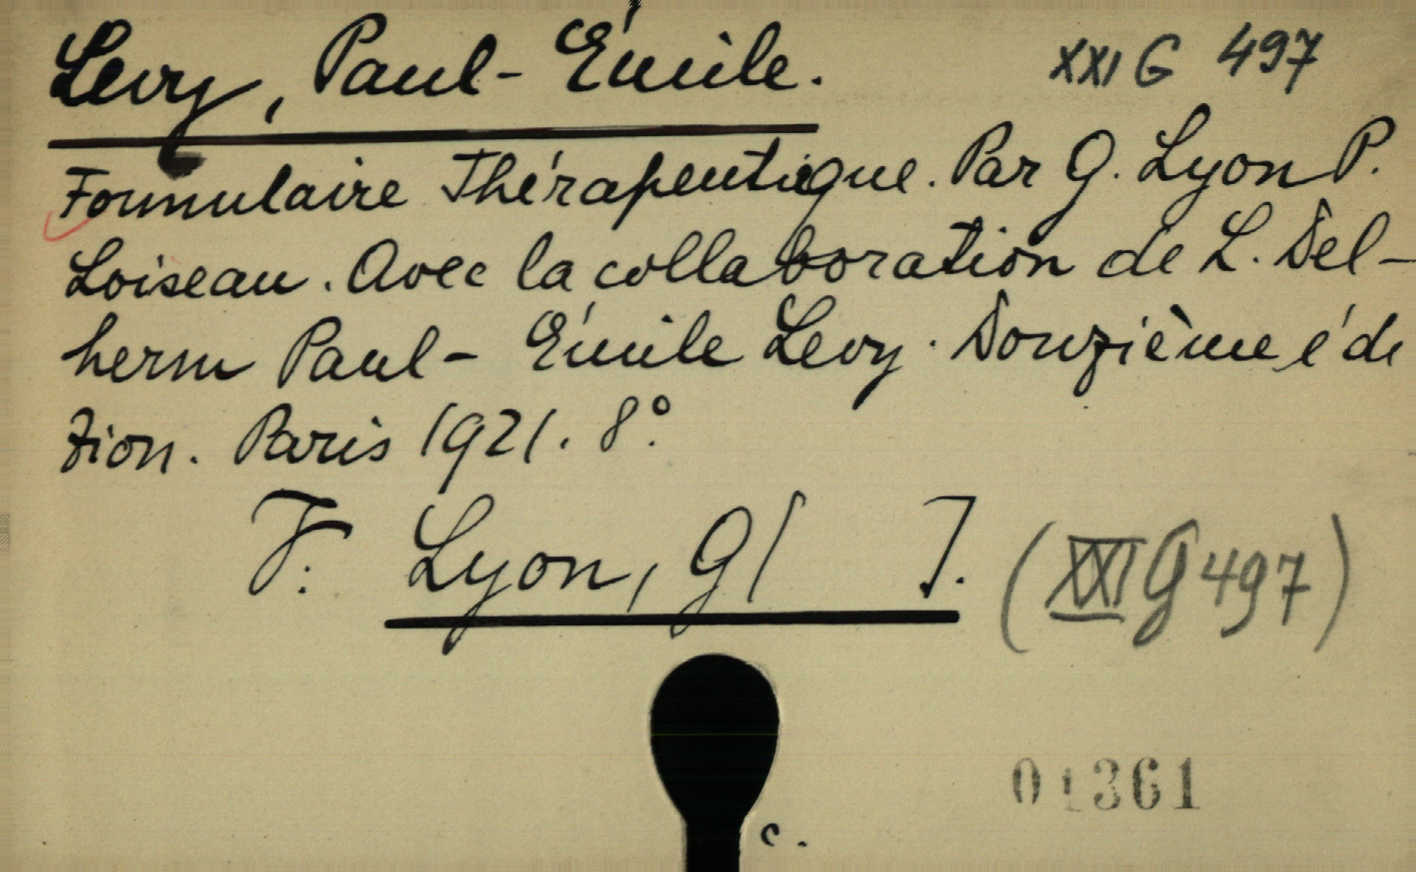 Levy, Paul-Émile. XXI G 497
Formulaire Thérapeutique. Par G. Lyon P.
Loiseau. Avec la collaboration de L. Del-
herm Paul- Émile Levy. Douzième édi
tion. Paris 1921. 8°.
V. Lyon, G/ J. (XXI G 497)
01361